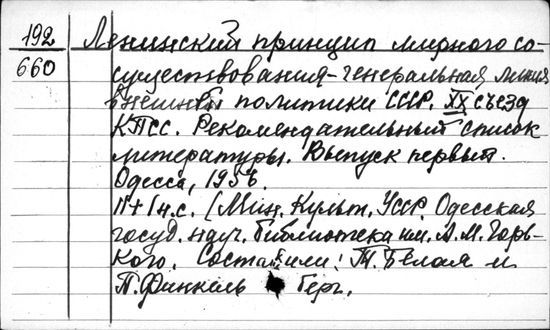 192
660
Ленинский принцип мирного со-
существования-генеральная линия
внешней политики СССР. XX съезд
КПСС. Рекомендательный список
литературы. Выпуск первый.
Одесса, 1956.
11+1н.с. [Мин. Культ. УССР. Одесская
госуд. науч. библиотека им. А.М. Горь-
кого. Составили: Т. Белая и
П. Финкель